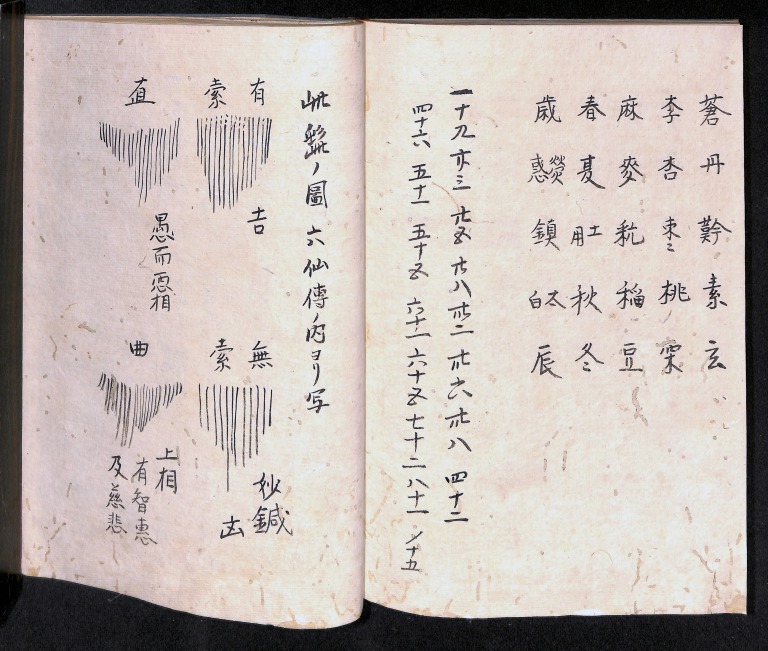 蒼丹黅素玄
李杏枣桃栗
麻麥秔稲豆
春夏土用秋冬
歳熒惑鎮太白辰
一十九 廿三 廿五 廿八 卅二 卅六 卅八 四十二
四十六 五十一 五十五 六十一 六十五 七十二 八十一
此髭ノ圖六仙傳ノ内ヨリ写
有索
吉
無索
妙鍼
凶
直
愚而悪相
曲
上相
有智惠
及慈悲